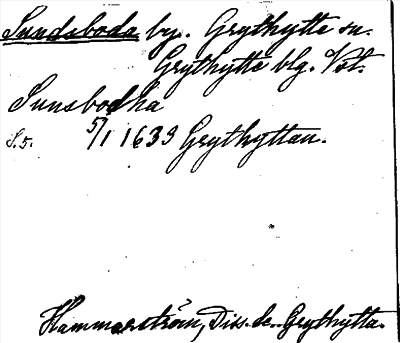 Sundsboda by. Grythytte sn.
Grythytte blg. Vst.
Sunsbodha
S. 5. 5/1 1639 Grythyttan.
Hammarström, Diss. de Grythytta.